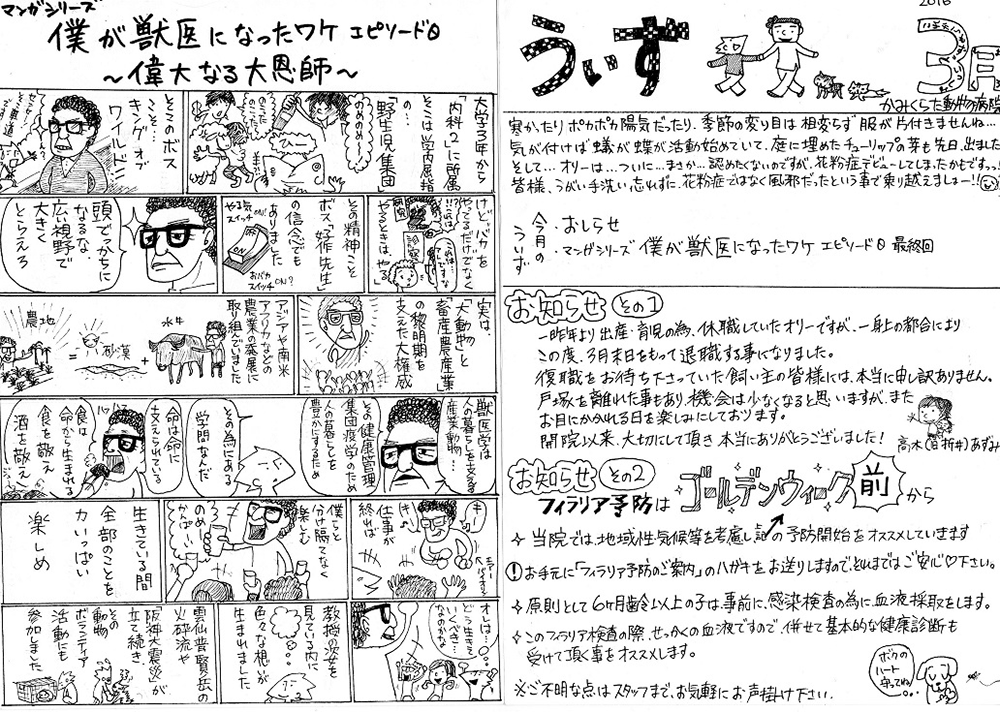 マンガシリーズ
僕が獣医になったワケ エピソード0
～偉大なる大恩師～
大学3年から
「内科2」に所属
そこは学内屈指
の…
「野生児集団」
のめのめ〜
ひー
そこのボス
こそ…
キング オブ
ワイルド!!
けどバカを
やってるだけでなく
やるときは、やる
診察
その精神こと
ボス「好作先生」
の信念でも
ありました
やる気
スイッチ
ON!
ON
おバカ
スイッチ
ON?
頭でっかちに
なるな、
広い視野で
大きく
とらえろ
実は、
「大動物」と
「畜産農産業」
の黎明期を
支えた大権威
アジアや南米
アフリカなどの
農業の発展に
取り組んでいました
水牛
+
砂漠
=
農地
獣医学は
人の暮らしを支える
産業動物…
その健康管理
集団疫学のため
人の暮らしを
豊かにするため
その為にある
学問なんだ
命は命に
支えられている
食は
命から生まれる
食を敬え
酒を敬え
仕事が
終れば
僕らと
分け隔てなく
楽しむ
のめー!
かんぱーい
生きている間
全部のことを
力いっぱい
楽しめ
オレは…
どう生きて
いくべき…
なのかな
教授の姿を
見ている内に
色々な想いが
生まれました
雲仙普賢岳の
火砕流や
阪神大震災が
立て続き、
その
動物
ボランティア
活動にも
参加しました
2016
ういず
3月
かみくらた動物病院
寒かったりポカポカ陽気だったり、季節の変り目は相変らず服が片付きませんね…
気が付けば蟻が蝶が活動始めていて、庭に埋めたチューリップの芽も先日、出ました
そして… オリーは…ついに…まさか…認めたくないのですが、花粉症デビューしてしまったかもですっ!
皆様、うがい手洗い忘れずに、花粉症ではなく風邪だったという事で乗り越えましょー!!
今月の
うぃず
・おしらせ
・マンガシリーズ 僕が獣医になったワケ エピソード0 最終回
お知らせ その1
一昨年より出産・育児の為、休職していたオリーですが、一身上の都合により
この度、3月末日をもって退職する事になりました。
復職をお待ち下さっていた飼い主の皆様には、本当に申し訳ありません。
戸塚を離れた事もあり、機会は少なくなると思いますが、また
お目にかかれる日を楽しみにしております。
開院以来、大切にして頂き本当にありがとうございました!
高木(旧 折井)あずみ
お知らせ その2
フィラリア予防は ゴールデンウィーク前から
✧ 当院では、地域性気候等を考慮し、上記の予防開始をオススメしていきます
! お手元に「フィラリア予防のご案内」のハガキをお送りしますので、それまではご安心♡下さい。
✧ 原則として6ヶ月齢以上の子は、事前に、感染検査の為に、血液採取をします。
✧ このフィラリア検査の際、せっかくの血液ですので、併せて基本的な健康診断も
受けて頂く事をオススメします。
※ご不明な点はスタッフまで、お気軽にお声掛け下さい。
ボクの
ハート
守ってね